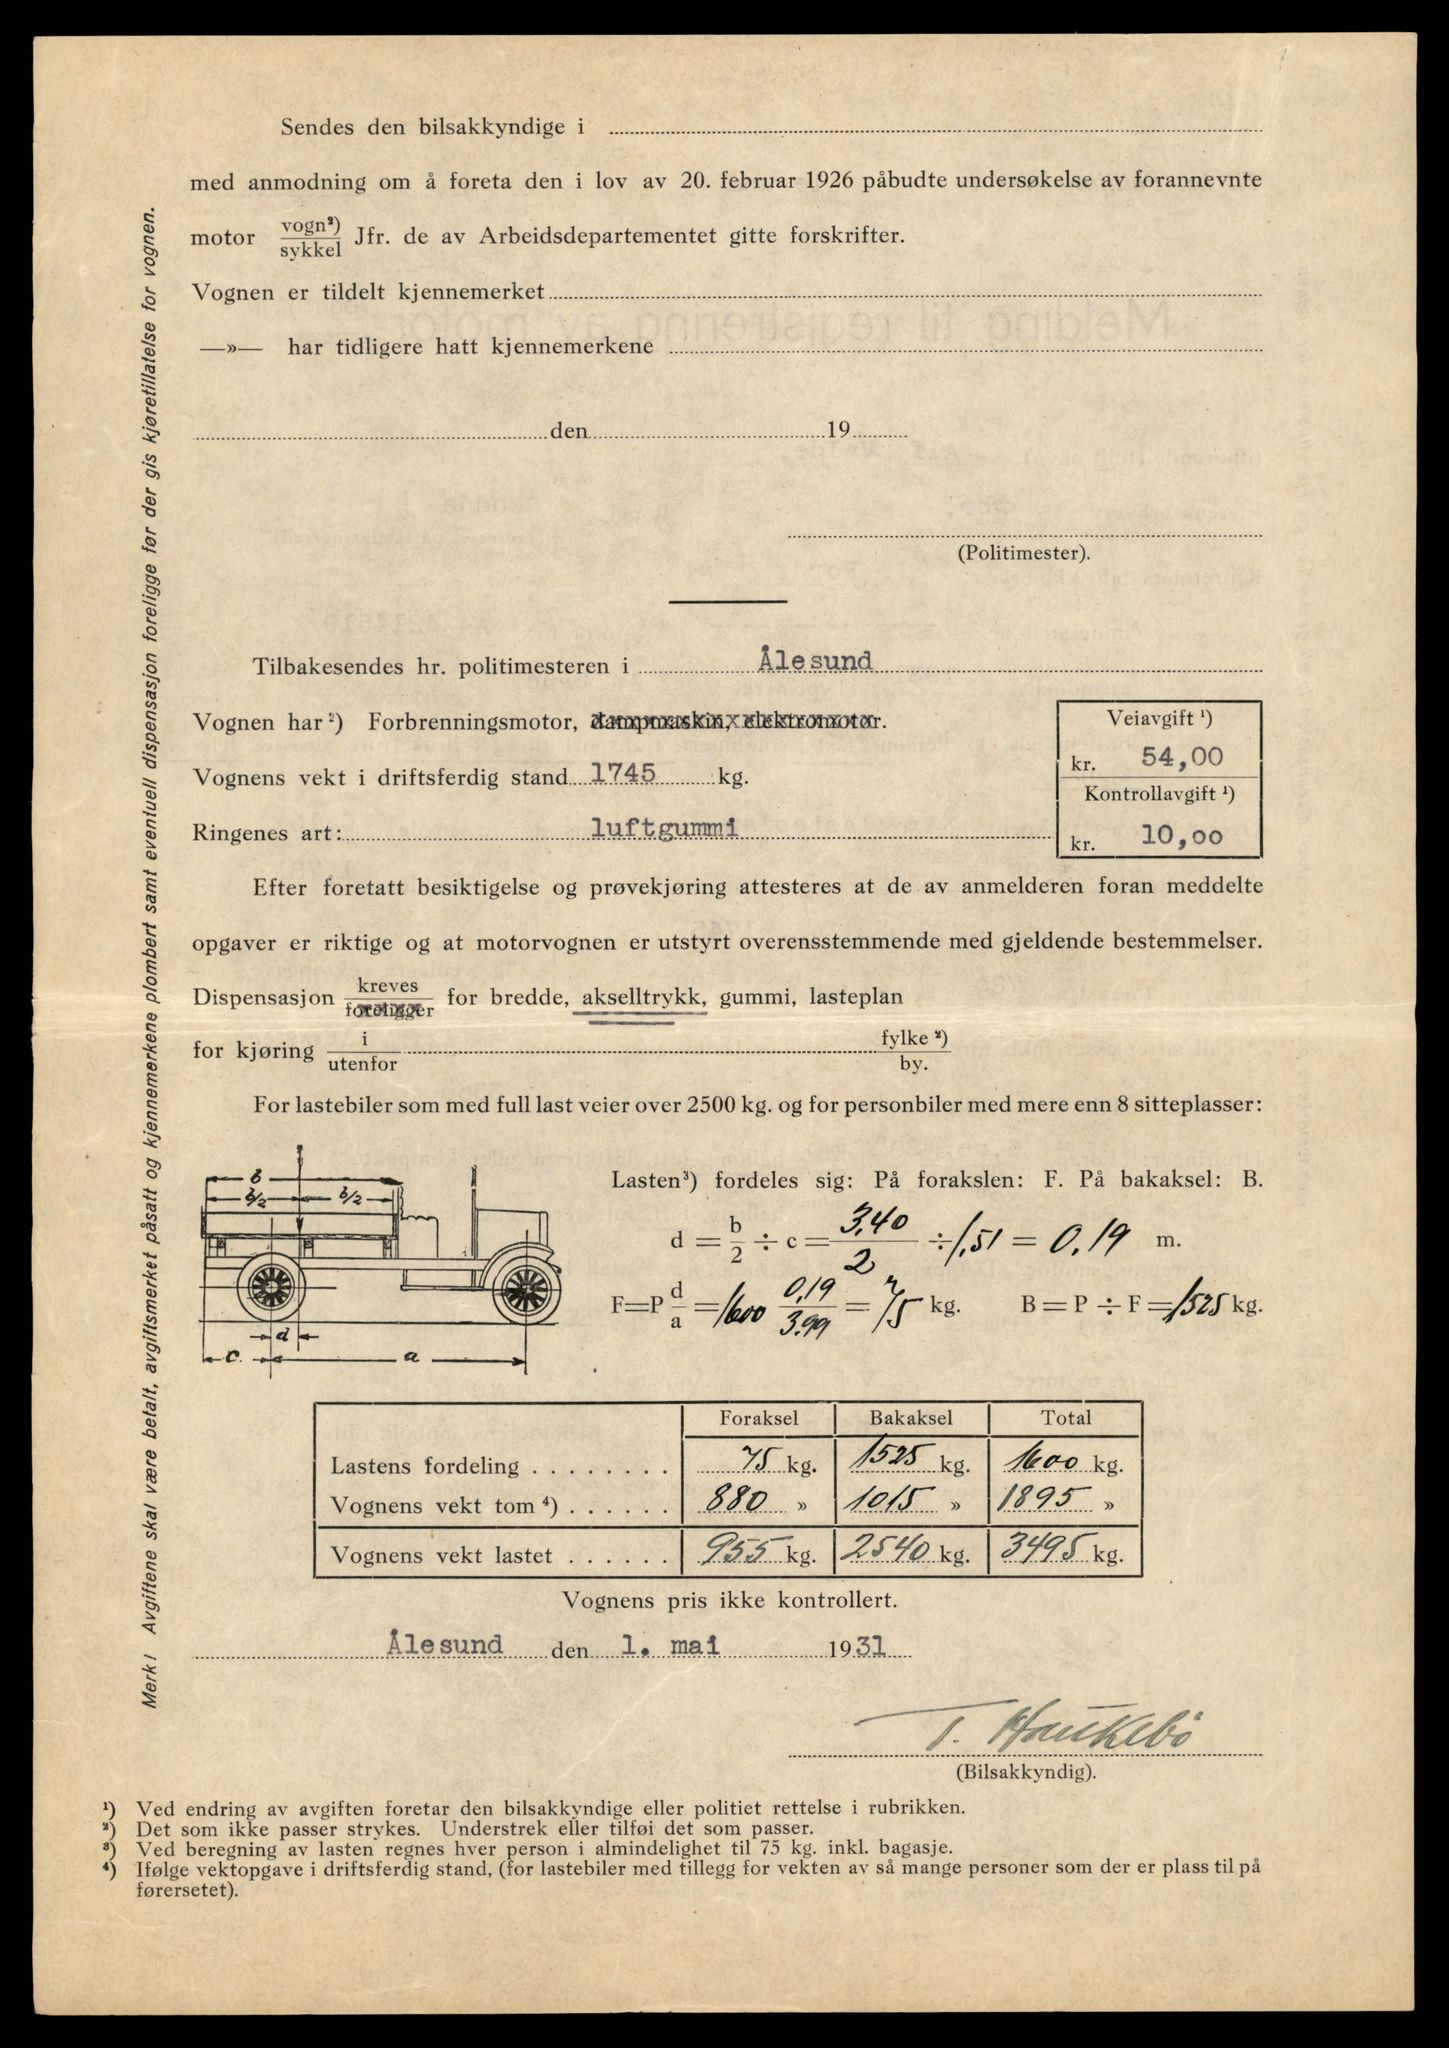 Sendes den bilsakkyndige i
med anmodning om å foreta den i lov av 20. februar 1926 påbudte undersøkelse av forannevnte
motor vogn²)/sykkel Jfr. de av Arbeidsdepartementet gitte forskrifter.
Vognen er tildelt kjennemerket
—»— har tidligere hatt kjennemerkene
den 19
(Politimester).
Tilbakesendes hr. politimesteren i Ålesund
Vognen har²) Forbrenningsmotor, dampmaskin, elektromotor.
Veiavgift ¹)
kr. 54,00
Vognens vekt i driftsferdig stand 1745 kg.
Kontrollavgift ¹)
Ringenes art: luftgummi
kr. 10,00
Efter foretatt besiktigelse og prøvekjøring attesteres at de av anmelderen foran meddelte
opgaver er riktige og at motorvognen er utstyrt overensstemmende med gjeldende bestemmelser.
Dispensasjon kreves/foreligger for bredde, akselltrykk, gummi, lasteplan
for kjøring i/utenfor fylke²)/by.
For lastebiler som med full last veier over 2500 kg. og for personbiler med mere enn 8 sitteplasser:
b
b/2 b/2
d
c. a
Lasten³) fordeles sig: På forakslen: F. På bakaksel: B.
d = b/2 ÷ c = 3,40/2 ÷ 1,51 = 0,19 m.
F=P d/a = 1600 0,19/3.99 = 75 kg. B = P ÷ F = 1525 kg.
Foraksel Bakaksel Total
Lastens fordeling . . . . . . . . 75 kg. 1525 kg. 1600 kg.
Vognens vekt tom ⁴) . . . . . . 880 » 1015 » 1895 »
Vognens vekt lastet . . . . . . 955 kg. 2540 kg. 3495 kg.
Vognens pris ikke kontrollert.
Ålesund den 1. mai 1931
T. Haukebö
(Bilsakkyndig).
¹) Ved endring av avgiften foretar den bilsakkyndige eller politiet rettelse i rubrikken.
²) Det som ikke passer strykes. Understrek eller tilføi det som passer.
³) Ved beregning av lasten regnes hver person i almindelighet til 75 kg. inkl. bagasje.
⁴) Ifølge vektopgave i driftsferdig stand, (for lastebiler med tillegg for vekten av så mange personer som der er plass til på
førersetet).
Merk! Avgiftene skal være betalt, avgiftsmerket påsatt og kjennemerkene plombert samt eventuell dispensasjon foreligge før der gis kjøretillatelse for vognen.